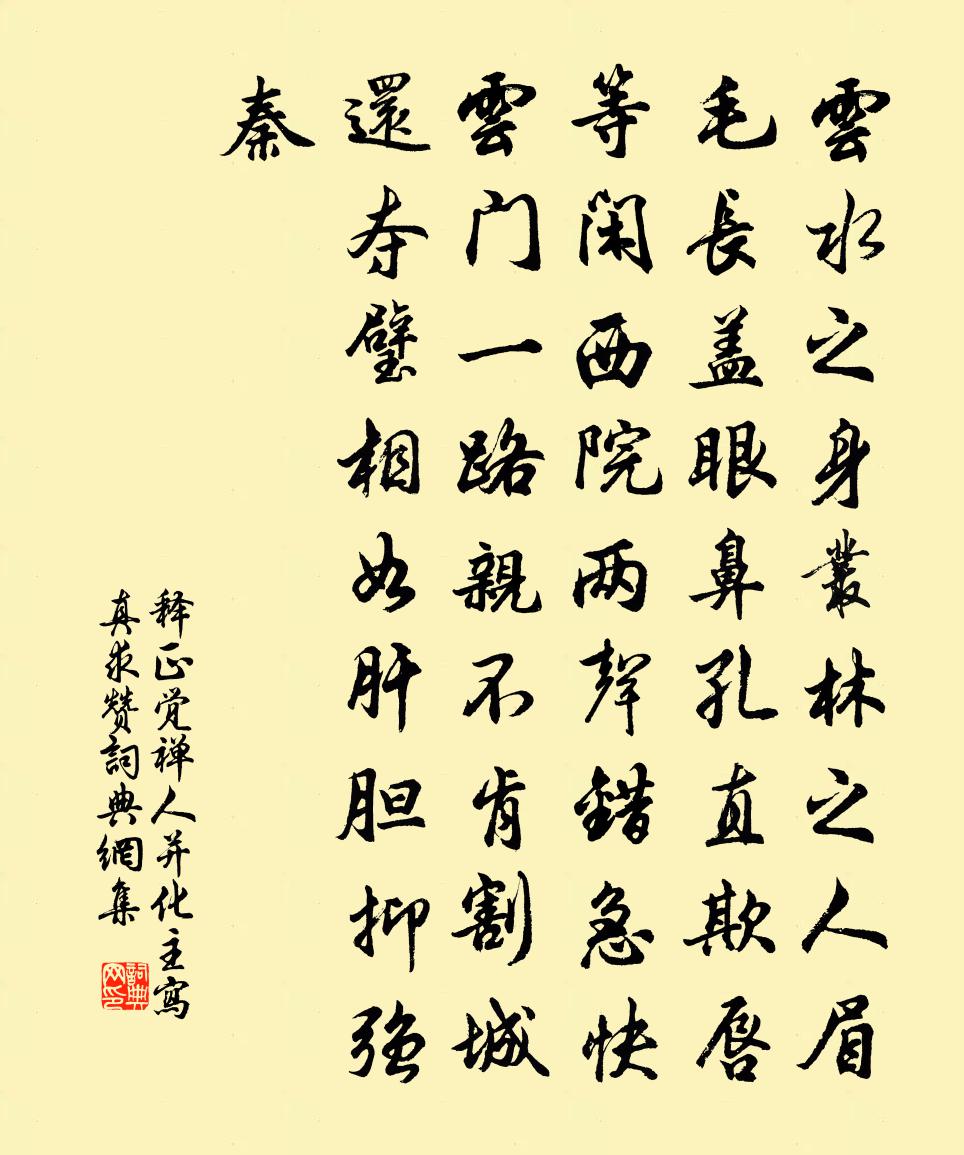 雲水之身叢林之人眉
毛長盖眼鼻孔直欺唇
等闲西院两聲錯急快
雲门一路親不肯割城
還夺璧相如肝胆抑强
秦
释正觉禅人并化主寫
真求赞詞典網集
詞典
网印